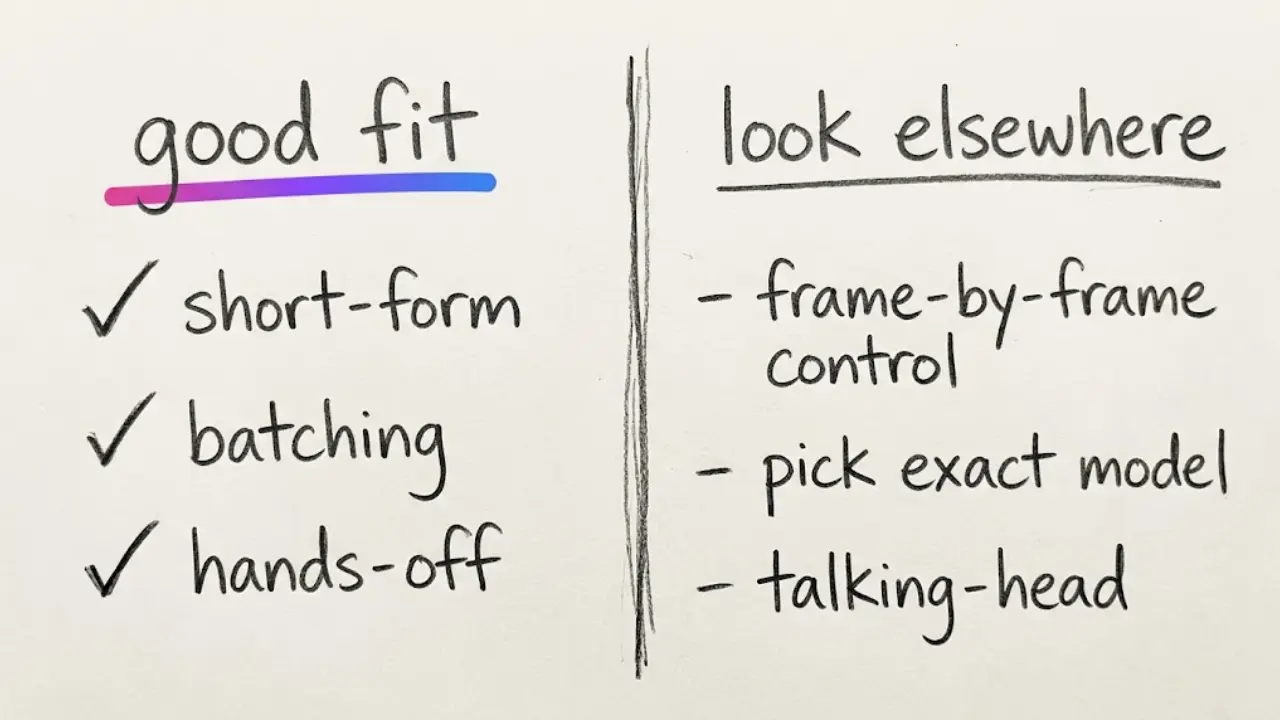 good fit
✓ short-form
✓ batching
✓ hands-off
look elsewhere
- frame-by-frame
control
- pick exact model
- talking-head